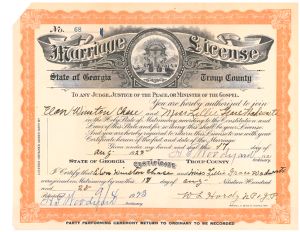 No. 68
Marriage License
State of Georgia Troup County
TO ANY JUDGE, JUSTICE OF THE PEACE, OR MINISTER OF THE GOSPEL.
You are hereby authorized to join
Elon Winston Chase and Miss Lillie
in the Holy State of Matrimony
Laws of this State and for so doing this shall be your License
And you are hereby required to return this License to me with your
Certificate hereon of the fact and date of the Marriage.
Given under my hand and seal this 17
Aug 1923
STATE OF GEORGIA Certificate TROUP COUNTY
I Certify that Elon Winston Chase and Miss Lillie
were joined in Matrimony by me this 18 day of Aug Nineteen Hundred
and 23
PARTY PERFORMING CEREMONY RETURN TO ORDINARY TO BE RECORDED